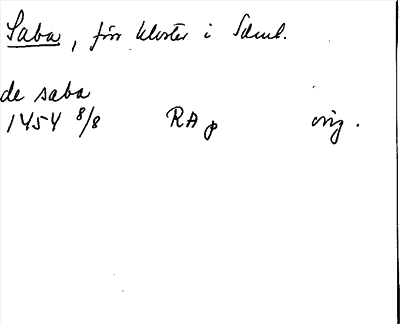 Saba, förr kloster i Söml.
de saba
1454 8/8 RA p orig.